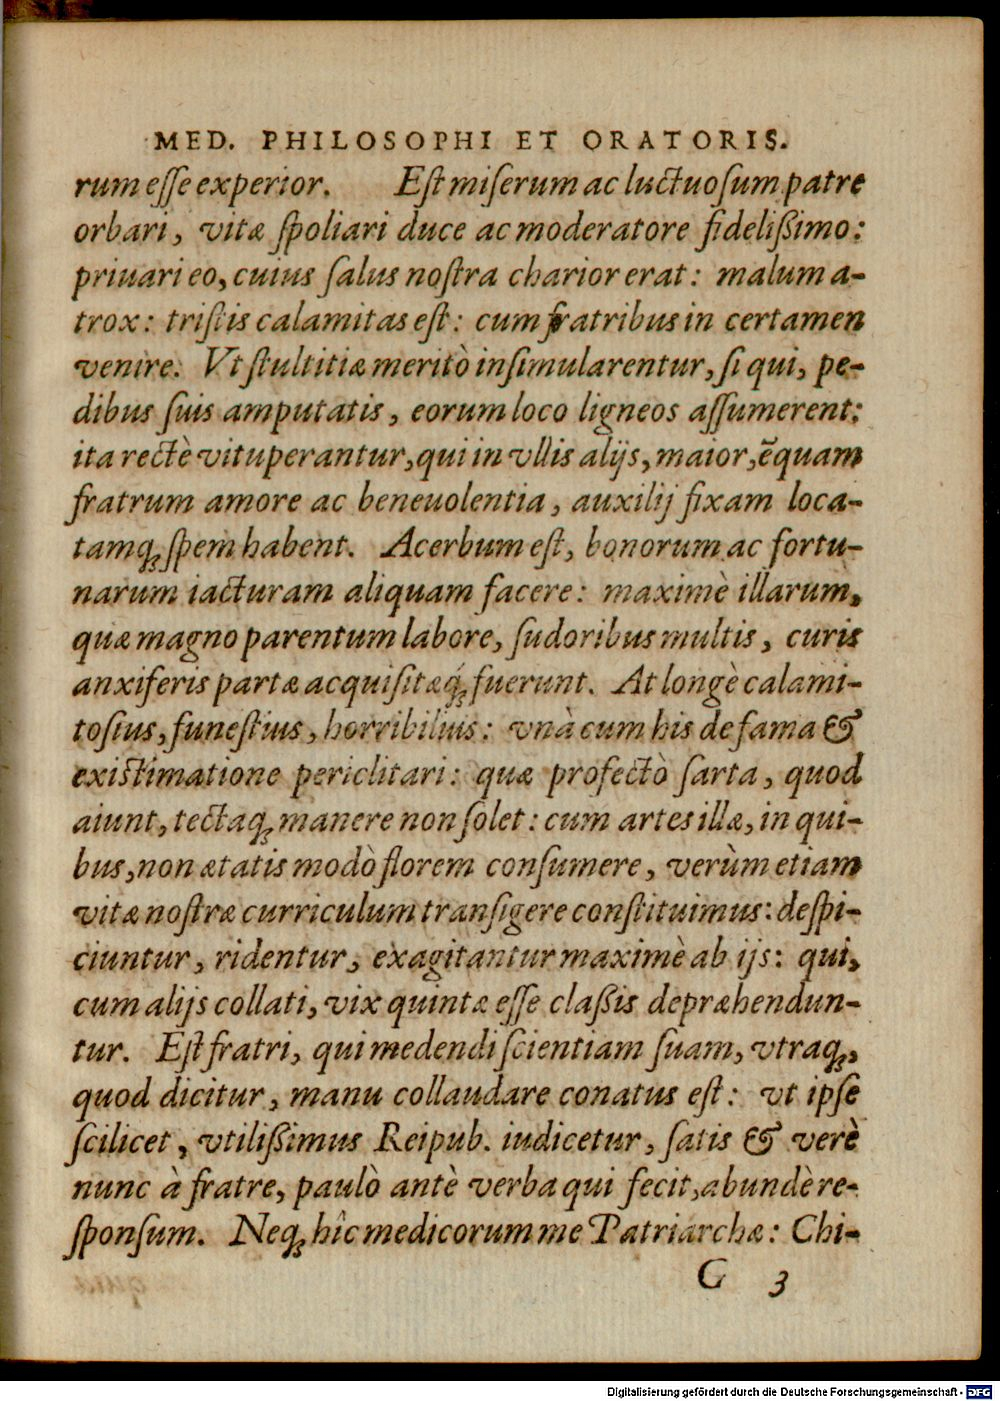 MED. PHILOSOPHI ET ORATORIS.
rum eſſe experior. Eſt miſerum ac luctuoſum patre
orbari, vitæ ſpoliari duce ac moderatore fideliſsimo:
priuari eo, cuius ſalus noſtra charior erat: malum a-
trox: triſtis calamitas eſt: cum fratribus in certamen
venire. Vt ſtultitiæ meritò inſimularentur, ſi qui, pe-
dibus ſuis amputatis, eorum loco ligneos aſſumerent:
ita rectè vituperantur, qui in vllis alijs, maiorẽ quam
fratrum amore ac beneuolentia, auxilij fixam loca-
tamq́; ſpem habent. Acerbum eſt, bonorum ac fortu-
narum iacturam aliquam facere: maximè illarum,
quæ magno parentum labore, ſudoribus multis, curis
anxiferis partæ acquiſitæq́; fuerunt. At longè calami-
toſius, funeſtius, horribilius: vnà cum his de fama &
existimatione periclitari: quæ profectò ſarta, quod
aiunt, tectaq; manere non ſolet: cum artes illæ, in qui-
bus, non ætatis modò florem conſumere, verùm etiam
vitæ noſtræ curriculum tranſigere conſtituimus: deſpi-
ciuntur, ridentur, exagitantur maximè ab ijs: qui,
cum alijs collati, vix quintæ eſſe claſsis depræhendun-
tur. Eſt fratri, qui medendi ſcientiam ſuam, vtraq;,
quod dicitur, manu collaudare conatus eſt: vt ipſe
ſcilicet, vtiliſsimus Reipub. iudicetur, ſatis & verè
nunc à fratre, paulò antè verba qui fecit, abundè re-
ſponſum. Neq; hîc medicorum me Patriarchæ: Chi-
G 3
Digitalisierung gefördert durch die Deutsche Forschungsgemeinschaft - DFG